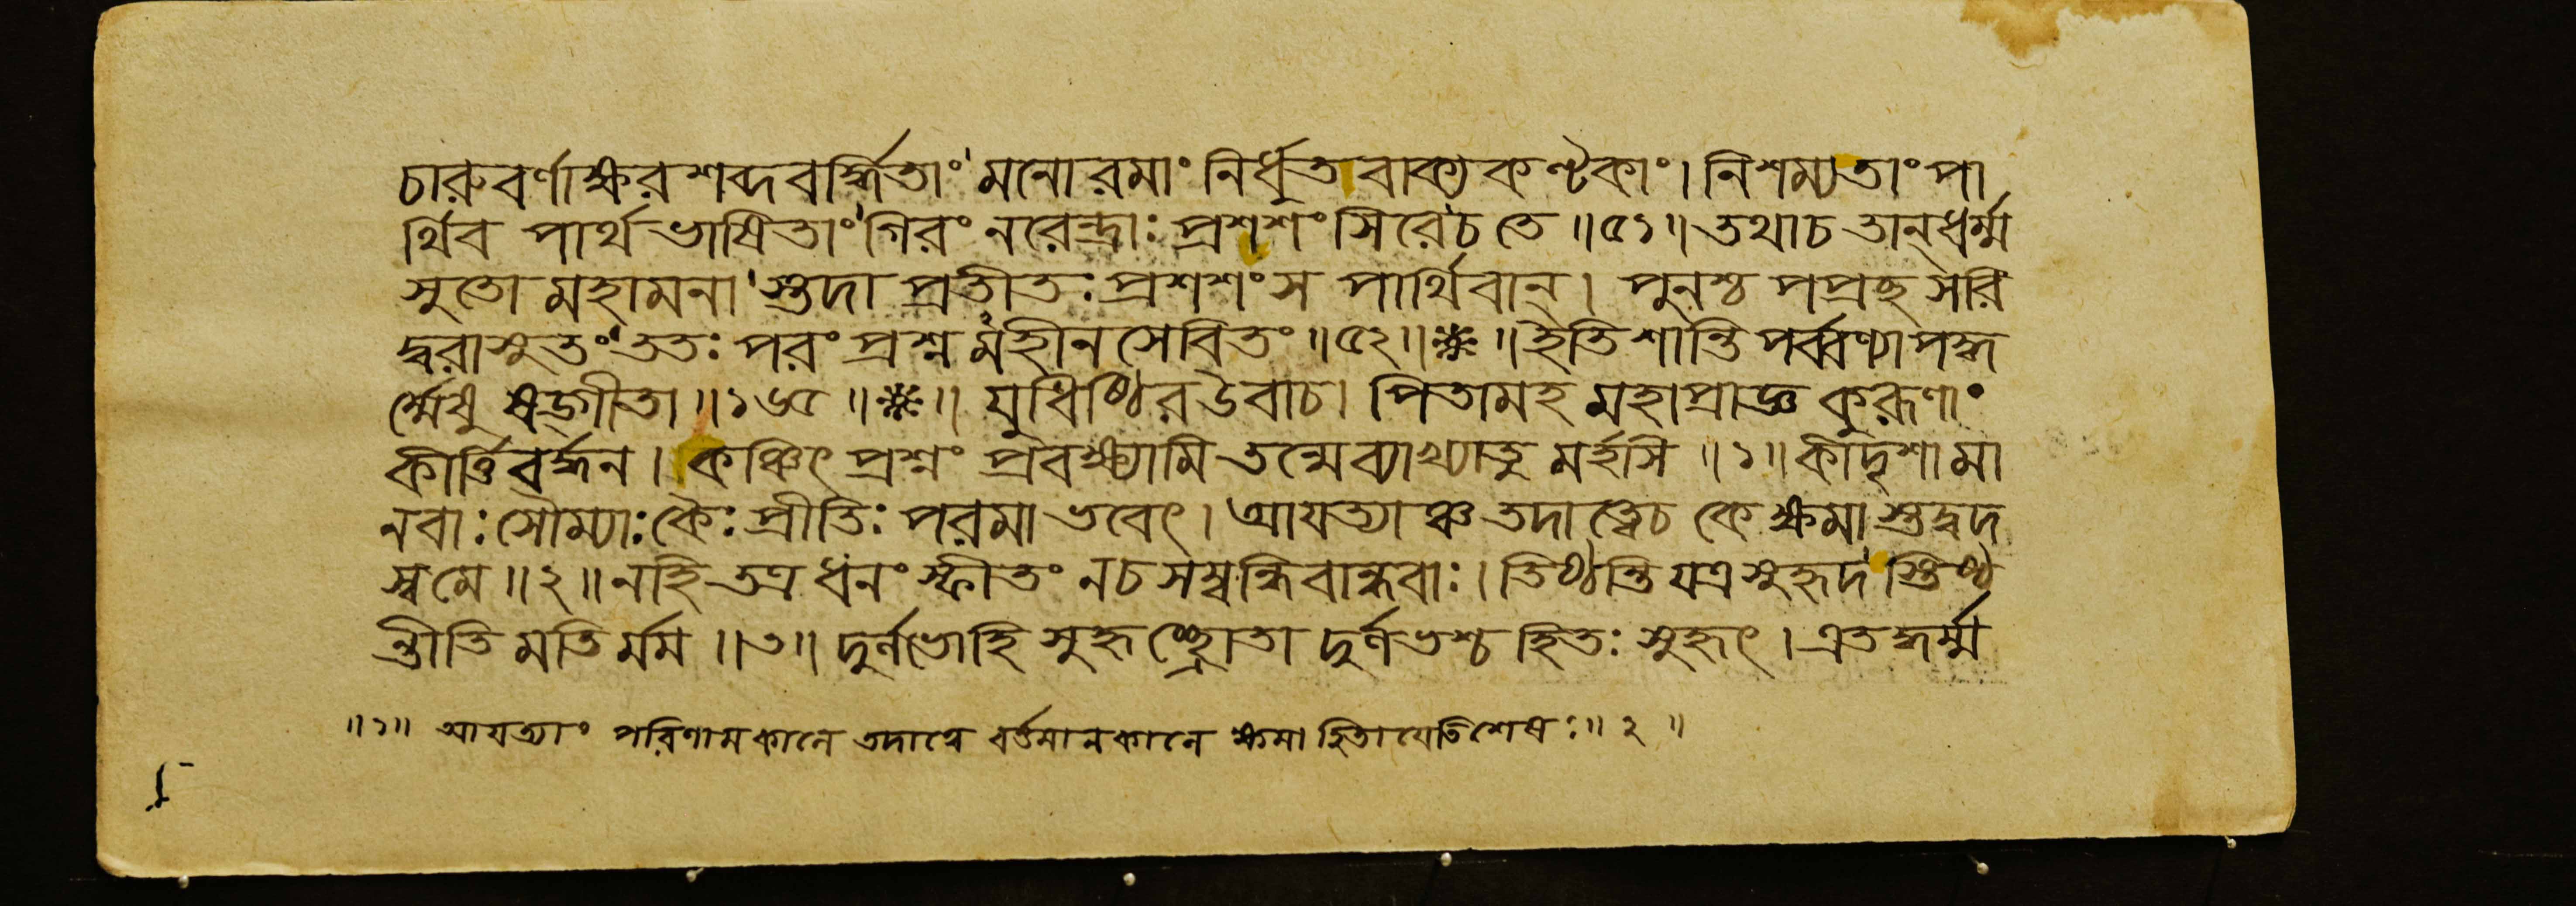 চারুবর্ণাক্ষরশব্দবর্দ্ধিতাং'মনোরমাং নির্ধুতবাক্যকণ্টকাং। নিশম্যতাং পা
র্থিব পার্থভাষিতাং'গিরং নরেন্দ্রাঃ প্রশশংসিরে'চ তে ॥৫১॥ তথাচ তান্ধর্ম্ম
সুতো মহামনা'স্তদা প্রতীতঃ প্রশশংস পার্থিবান্। পুনশ্চ পপ্রচ্ছ সরি
দ্বরাসুতং'ততঃ পরং প্রশ্নমহীনসেবিতং ॥৫২॥❋॥ ইতি শান্তিপর্ব্বণ্যাপদ্ধ
র্ম্মেষু ষড়্গীতা ॥১৬৫॥❋॥ যুধিষ্ঠির উবাচ। পিতামহ মহাপ্রাজ্ঞ কুরূণাং
কীর্ত্তিবর্দ্ধন। কঞ্চিৎ প্রশ্নং প্রবক্ষ্যামি তন্মে ব্যাখ্যাতু মর্হসি ॥১॥ কীদৃশা মা
নবাঃ সৌম্যাঃ কৈঃ প্রীতিঃ পরমা ভবেৎ। আযত্যাঞ্চ তদাত্বেচ কে ক্ষমা স্তদ্বদ
স্ব মে ॥২॥ নহি তত্র ধনং স্ফীতং নচ সম্বন্ধি বান্ধবাঃ। তিষ্ঠন্তি যত্র সুহৃদ'স্তিষ্ঠ
ন্তীতি মতি র্মম ॥৩॥ দুর্লভোহি সুহৃচ্ছ্রোতা দুর্লভশ্চ হিতঃ সুহৃৎ। এতদ্ধর্ম্ম
॥১॥ আযত্যাং পরিণামকালে তদাত্বে বর্তমানকালে ক্ষমা হিতাযেতিশেষঃ॥২॥